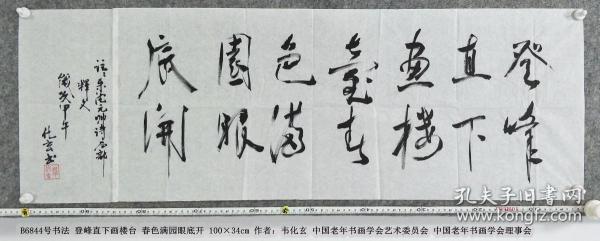 登峰
直下
畫樓
臺春
色滿
園眼
底開
元帅诗
甲午
化玄书
孔夫子旧书网
B6844号书法 登峰直下画楼台 春色满园眼底开 100×34cm 作者：韦化玄 中国老年书画学会艺术委员会 中国老年书画学会理事会